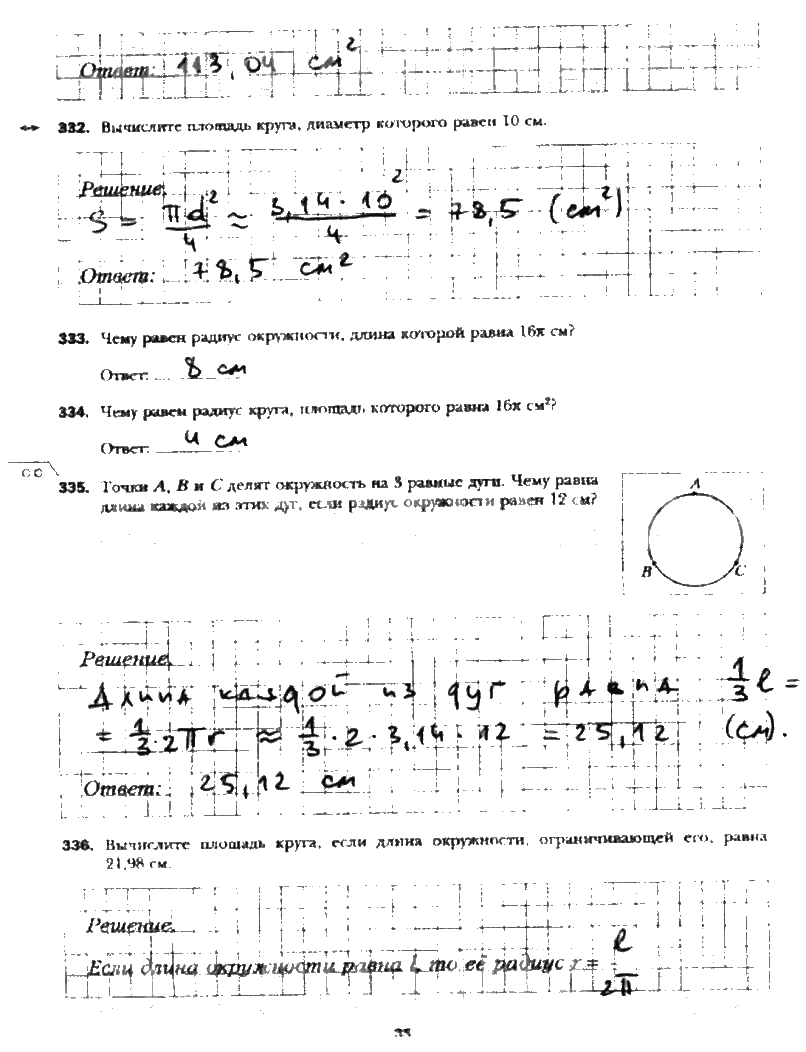 Ответ: 113,04 см²
332. Вычислите площадь круга, диаметр которого равен 10 см.
Решение.
S = πd²/4 ≈ 3,14·10²/4 = 78,5 (см²)
Ответ: 78,5 см²
333. Чему равен радиус окружности, длина которой равна 16π см?
Ответ: 8 см
334. Чему равен радиус круга, площадь которого равна 16π см²?
Ответ: 4 см
335. Точки A, B и C делят окружность на 3 равные дуги. Чему равна
длина каждой из этих дуг, если радиус окружности равен 12 см?
A
B C
Решение.
Длина каждой из дуг равна 1/3 l =
= 1/3·2πr ≈ 1/3·2·3,14·12 = 25,12 (см).
Ответ: 25,12 см
336. Вычислите площадь круга, если длина окружности, ограничивающей его, равна
21,98 см.
Решение.
Если длина окружности равна l, то её радиус r = l/2π